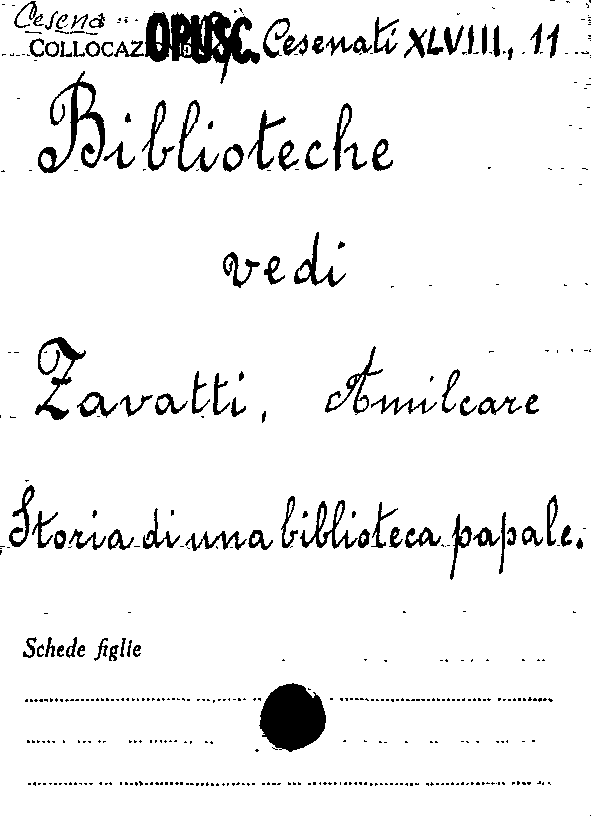 Cesena
COLLOCAZIONE OPUSC. Cesenati XLVIII, 11
Biblioteche
vedi
Zavatti, Amilcare
Storia di una biblioteca papale.
Schede figlie